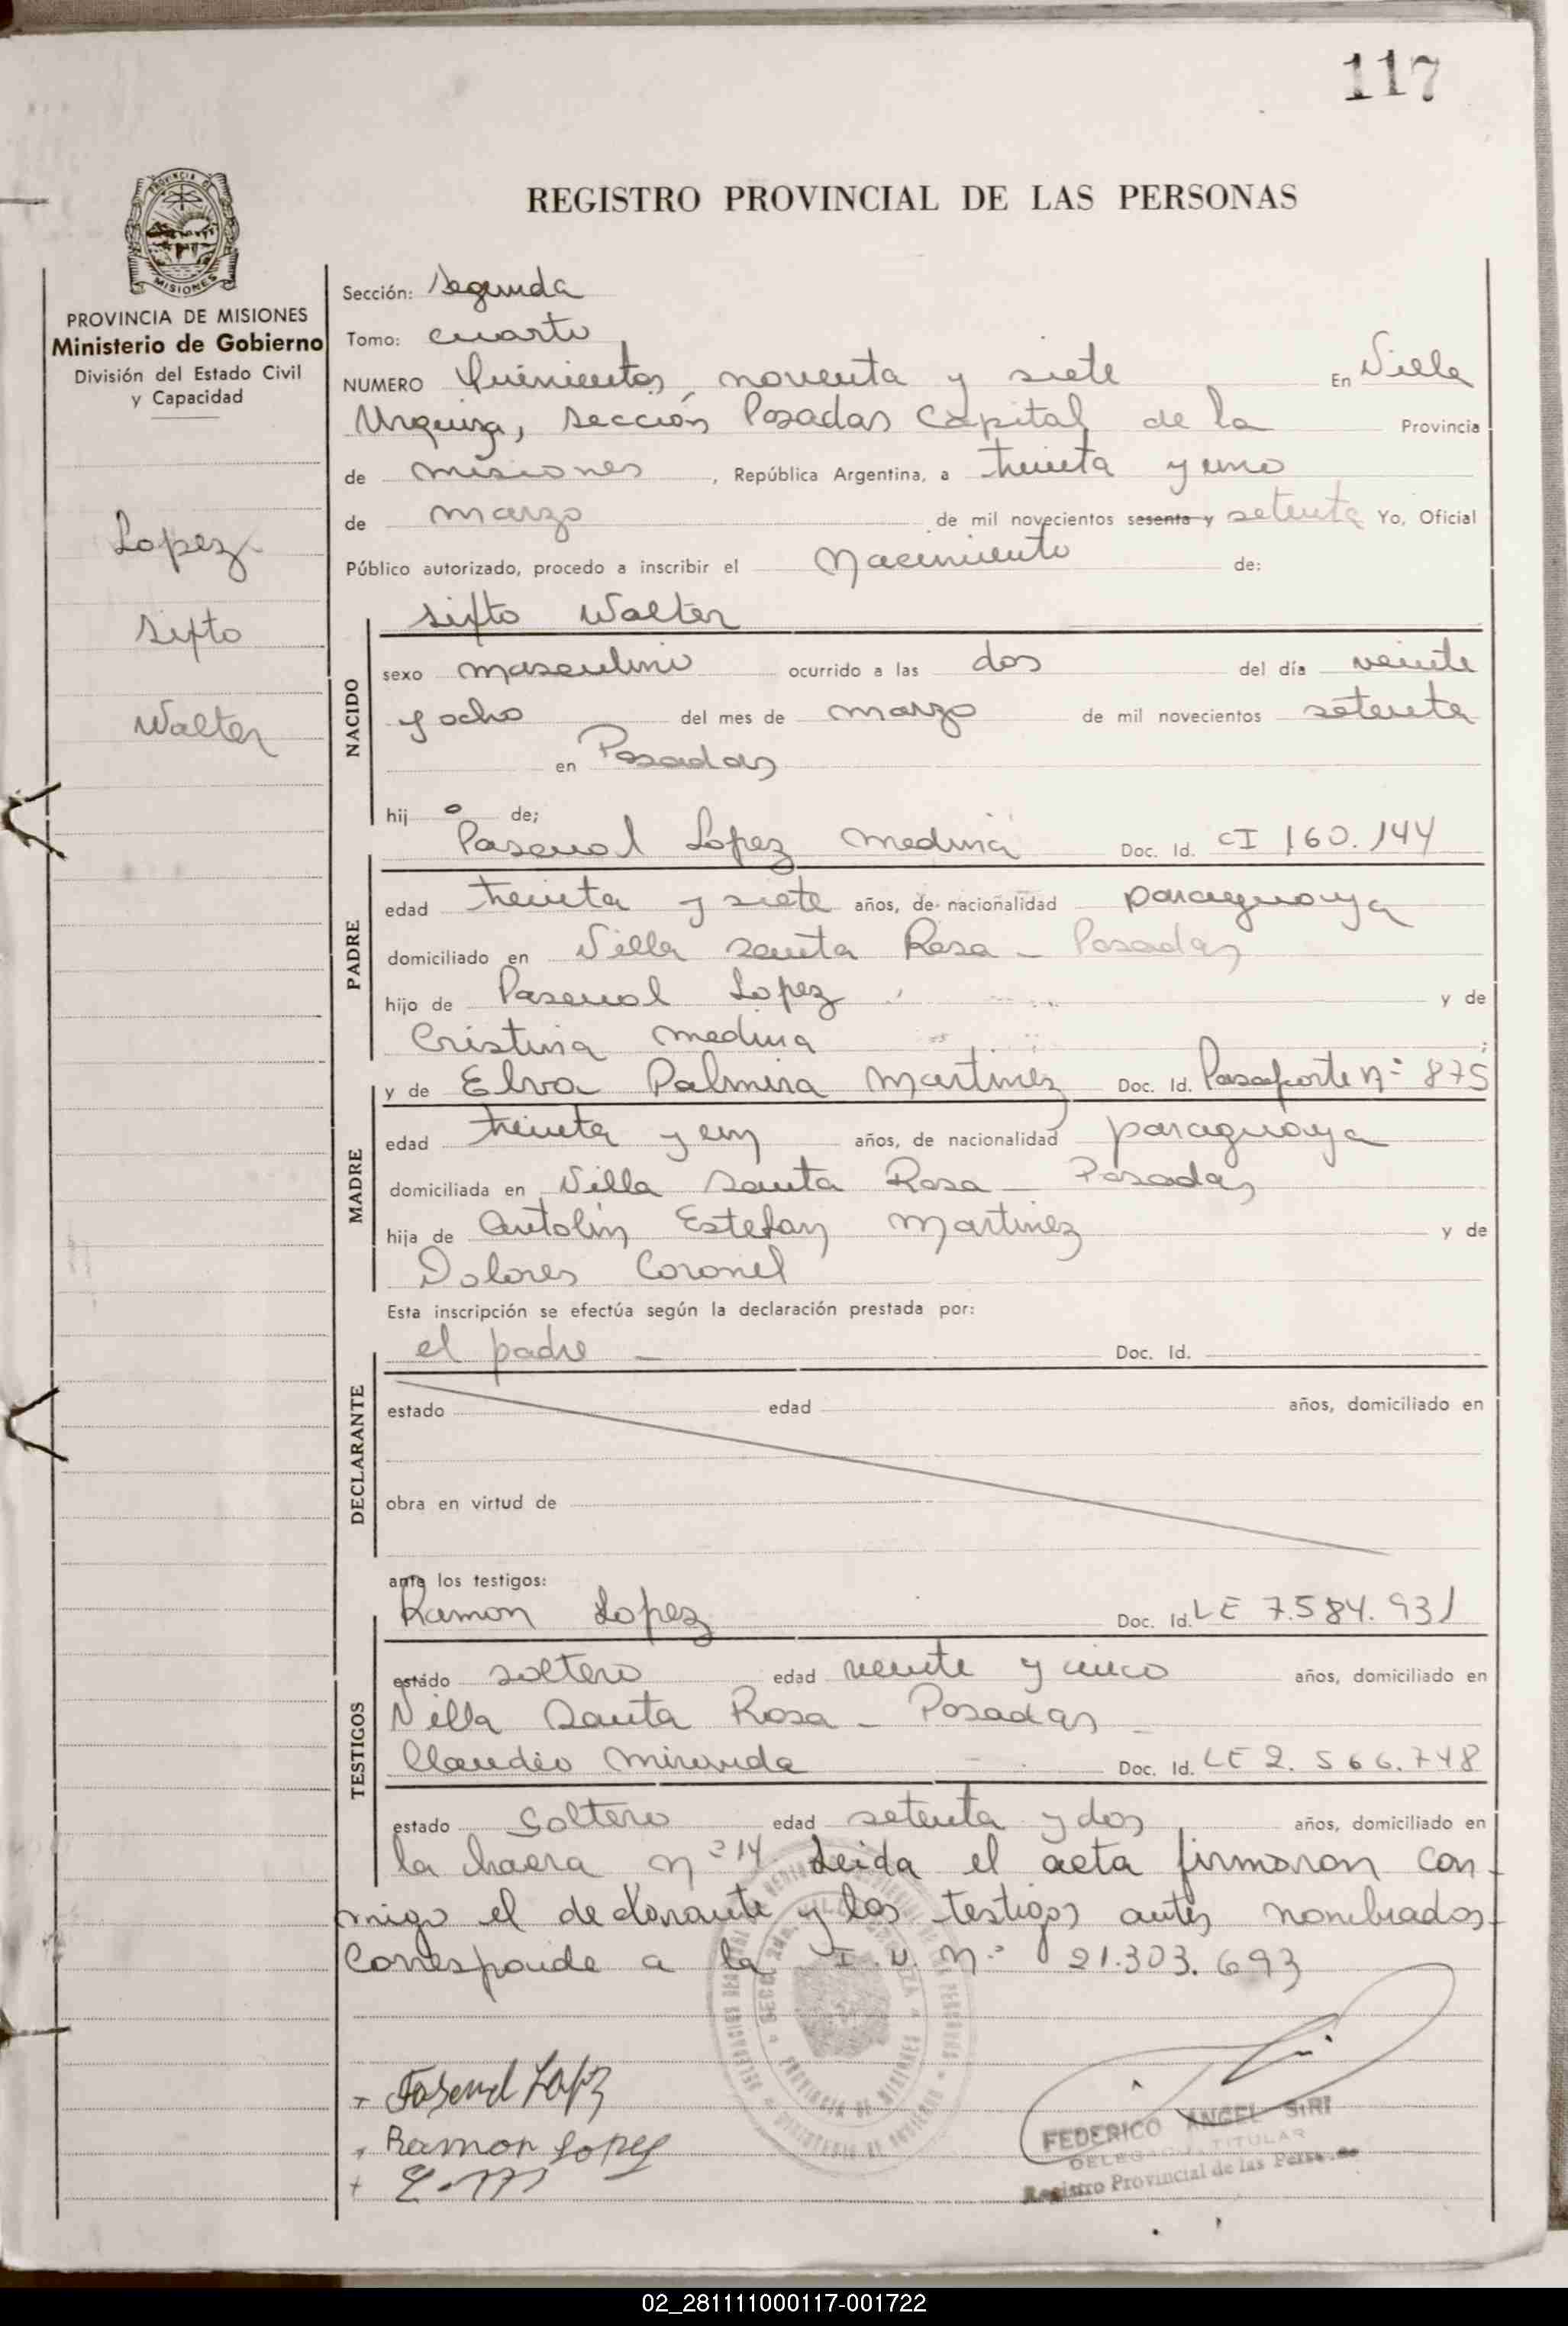 117
REGISTRO PROVINCIAL DE LAS PERSONAS
PROVINCIA DE MISIONES
Ministerio de Gobierno
División del Estado Civil
y Capacidad
Lopez
Sixto
Walter
Sección: Segunda
Tomo: cuarto
NUMERO Quinientos noventa y siete En Villa
Urquiza, sección Posadas Capital de la Provincia
de misiones, República Argentina, a treinta y uno
de marzo de mil novecientos sesenta y setenta Yo, Oficial
Público autorizado, procedo a inscribir el Nacimiento de:
Sixto Walter
NACIDO
sexo masculino ocurrido a las dos del día veinte
y ocho del mes de marzo de mil novecientos setenta
en Posadas
hij o de;
Pascual Lopez Medina Doc. Id. CI 160.144
PADRE
edad treinta y siete años, de nacionalidad paraguaya
domiciliado en Villa Santa Rosa - Posadas
hijo de Pascual Lopez y de
Cristina Medina
y de Elva Palmira Martinez Doc. Id. Pasaporte nº 875
MADRE
edad treinta y un años, de nacionalidad paraguaya
domiciliada en Villa Santa Rosa - Posadas
hija de Antolín Estefan Martinez y de
Dolores Coronel
Esta inscripción se efectúa según la declaración prestada por:
el padre - Doc. Id.
DECLARANTE
estado edad años, domiciliado en
obra en virtud de
ante los testigos:
Ramon Lopez Doc. Id. LE 7.584.931
TESTIGOS
estado soltero edad veinte y cinco años, domiciliado en
Villa Santa Rosa - Posadas -
Claudio Miranda Doc. Id. LE 2.566.748
estado soltero edad setenta y dos años, domiciliado en
la chacra nº 14 Leida el acta firmaron con-
migo el declarante y los testigos antes nombrados-
Corresponde a la I.U. nº 21.303.693
Pascual Lopez
Ramon Lopez
FEDERICO ANGEL SIRI
DELEGADO TITULAR
Registro Provincial de las Personas
02_281111000117-001722